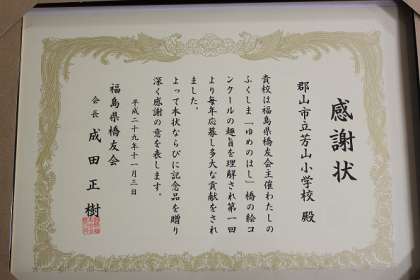 感謝状
郡山市立芳山小学校 殿
貴校は福島県橋友会主催わたしの
ふくしま「ゆめのはし」橋の絵コ
ンクールの趣旨を理解され第一回
より毎年応募し多大な貢献をされ
ました。
よって本状ならびに記念品を贈り
深く感謝の意を表します。
平成二十九年十一月三日
福島県橋友会
会長 成田正樹